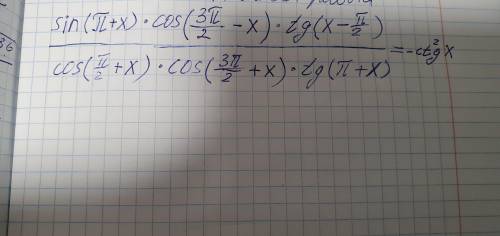 sin(π+x)·cos(3π/2-x)·tg(x-π/2)
cos(π/2+x)·cos(3π/2+x)·tg(π+x)
=-ctg²x